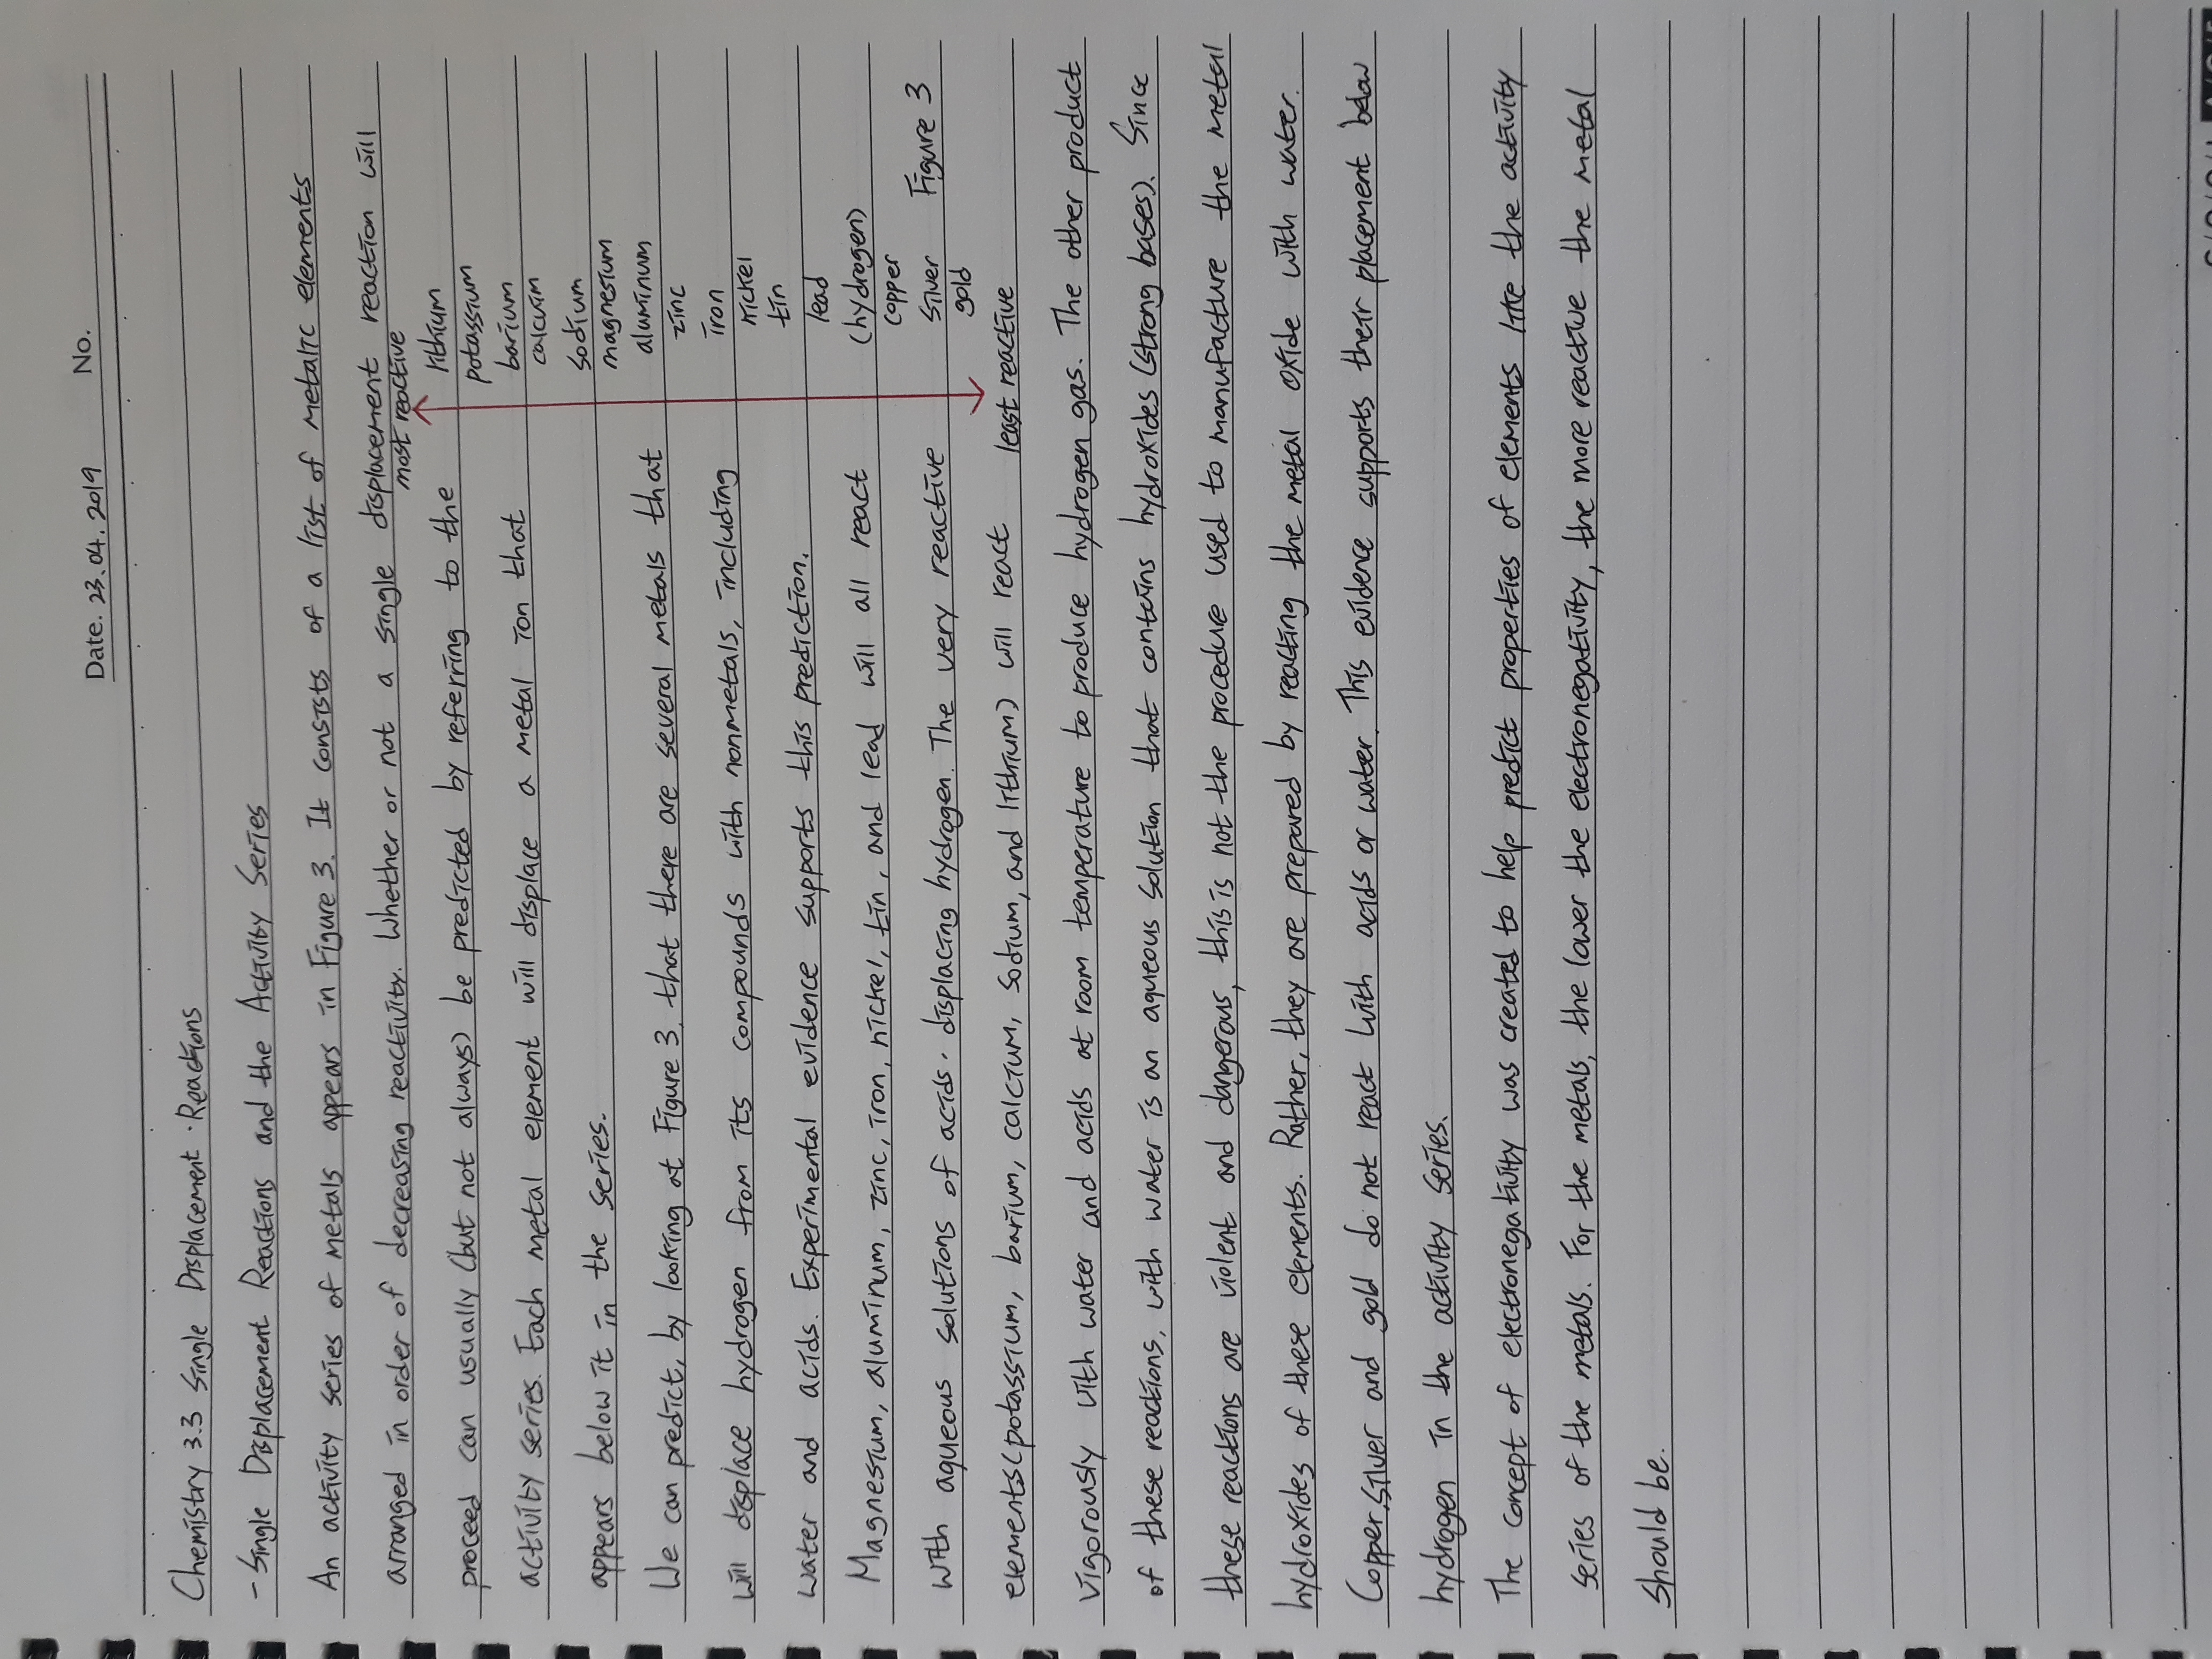 Date. 23. 04. 2019 No.
Chemistry 3.3 Single Displacement Reactions
- Single Displacement Reactions and the Activity Series
An activity series of metals appears in Figure 3. It consists of a list of metalic elements
arranged in order of decreasing reactivity. Whether or not a single displacement reaction will
proceed can usually (but not always) be predicted by referring to the
activity series. Each metal element will displace a metal ion that
appears below it in the series.
We can predict, by looking at Figure 3, that there are several metals that
will displace hydrogen from its compounds with nonmetals, including
water and acids. Experimental evidence supports this prediction.
Magnesium, aluminum, zinc, iron, nickel, tin, and lead will all react
with aqueous solutions of acids. displacing hydrogen. The very reactive
elements (potassium, barium, calcium, sodium, and lithium) will react
vigorously with water and acids at room temperature to produce hydrogen gas. The other product
of these reactions, with water is an aqueous solution that contains hydroxides (strong bases). Since
these reactions are violent and dangerous, this is not the procedure used to manufacture the metal
hydroxides of these elements. Rather, they are prepared by reacting the metal oxide with water.
Copper, silver and gold do not react with acids or water. This evidence supports their placement below
hydrogen in the activity series.
The concept of electronegativity was created to help predict properties of elements like the activity
series of the metals. For the metals, the lower the electronegativity, the more reactive the metal
should be.
most reactive
lithium
potassium
barium
calcium
sodium
magnesium
aluminum
zinc
iron
nickel
tin
lead
(hydrogen)
copper
silver Figure 3
gold
least reactive